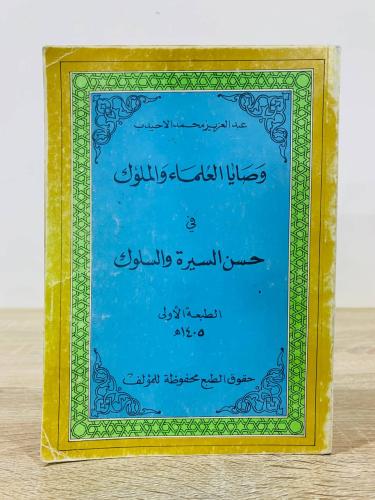 عبد العزيز محمد الاحيدب
وصايا العلماء والملوك
في
حسن السيرة والسلوك
الطبعة الأولى
١٤٠٥ه
حقوق الطبع محفوظة للمؤلف